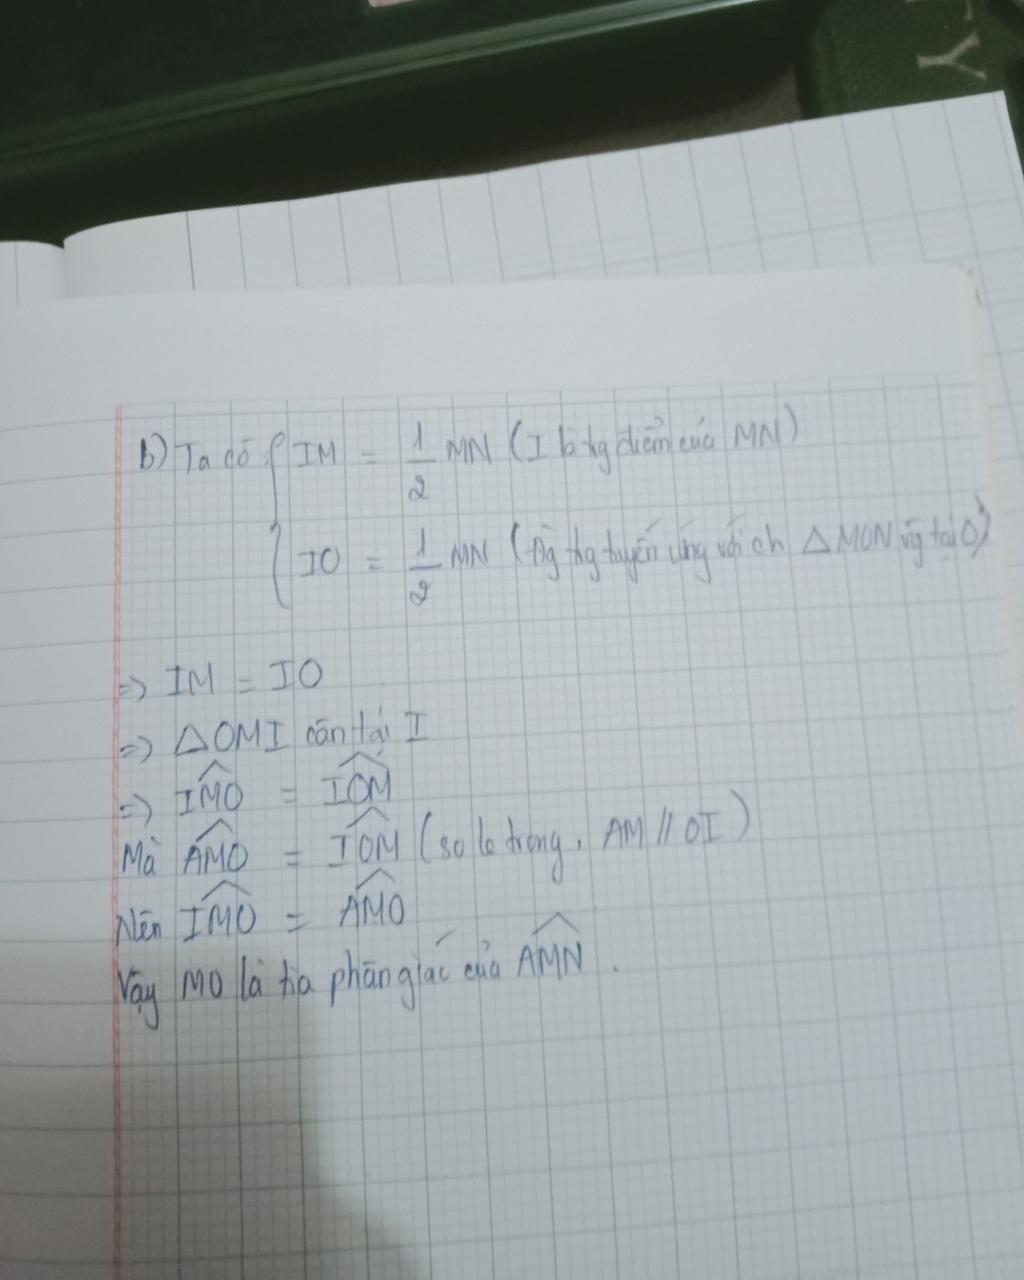 Y
b) Ta có { IM = 1/2 MN (I là tg điểm của MN)
{ IO = 1/2 MN (Đg tg tuyến ứng với ch ΔMON vg tại O)
=> IM = IO
=> ΔOMI cân tại I
=> \widehat{IMO} = \widehat{IOM}
Mà \widehat{AMO} = \widehat{IOM} (so le trong, AM // OI)
Nên \widehat{IMO} = \widehat{AMO}
Vậy MO là tia phân giác của \widehat{AMN}.